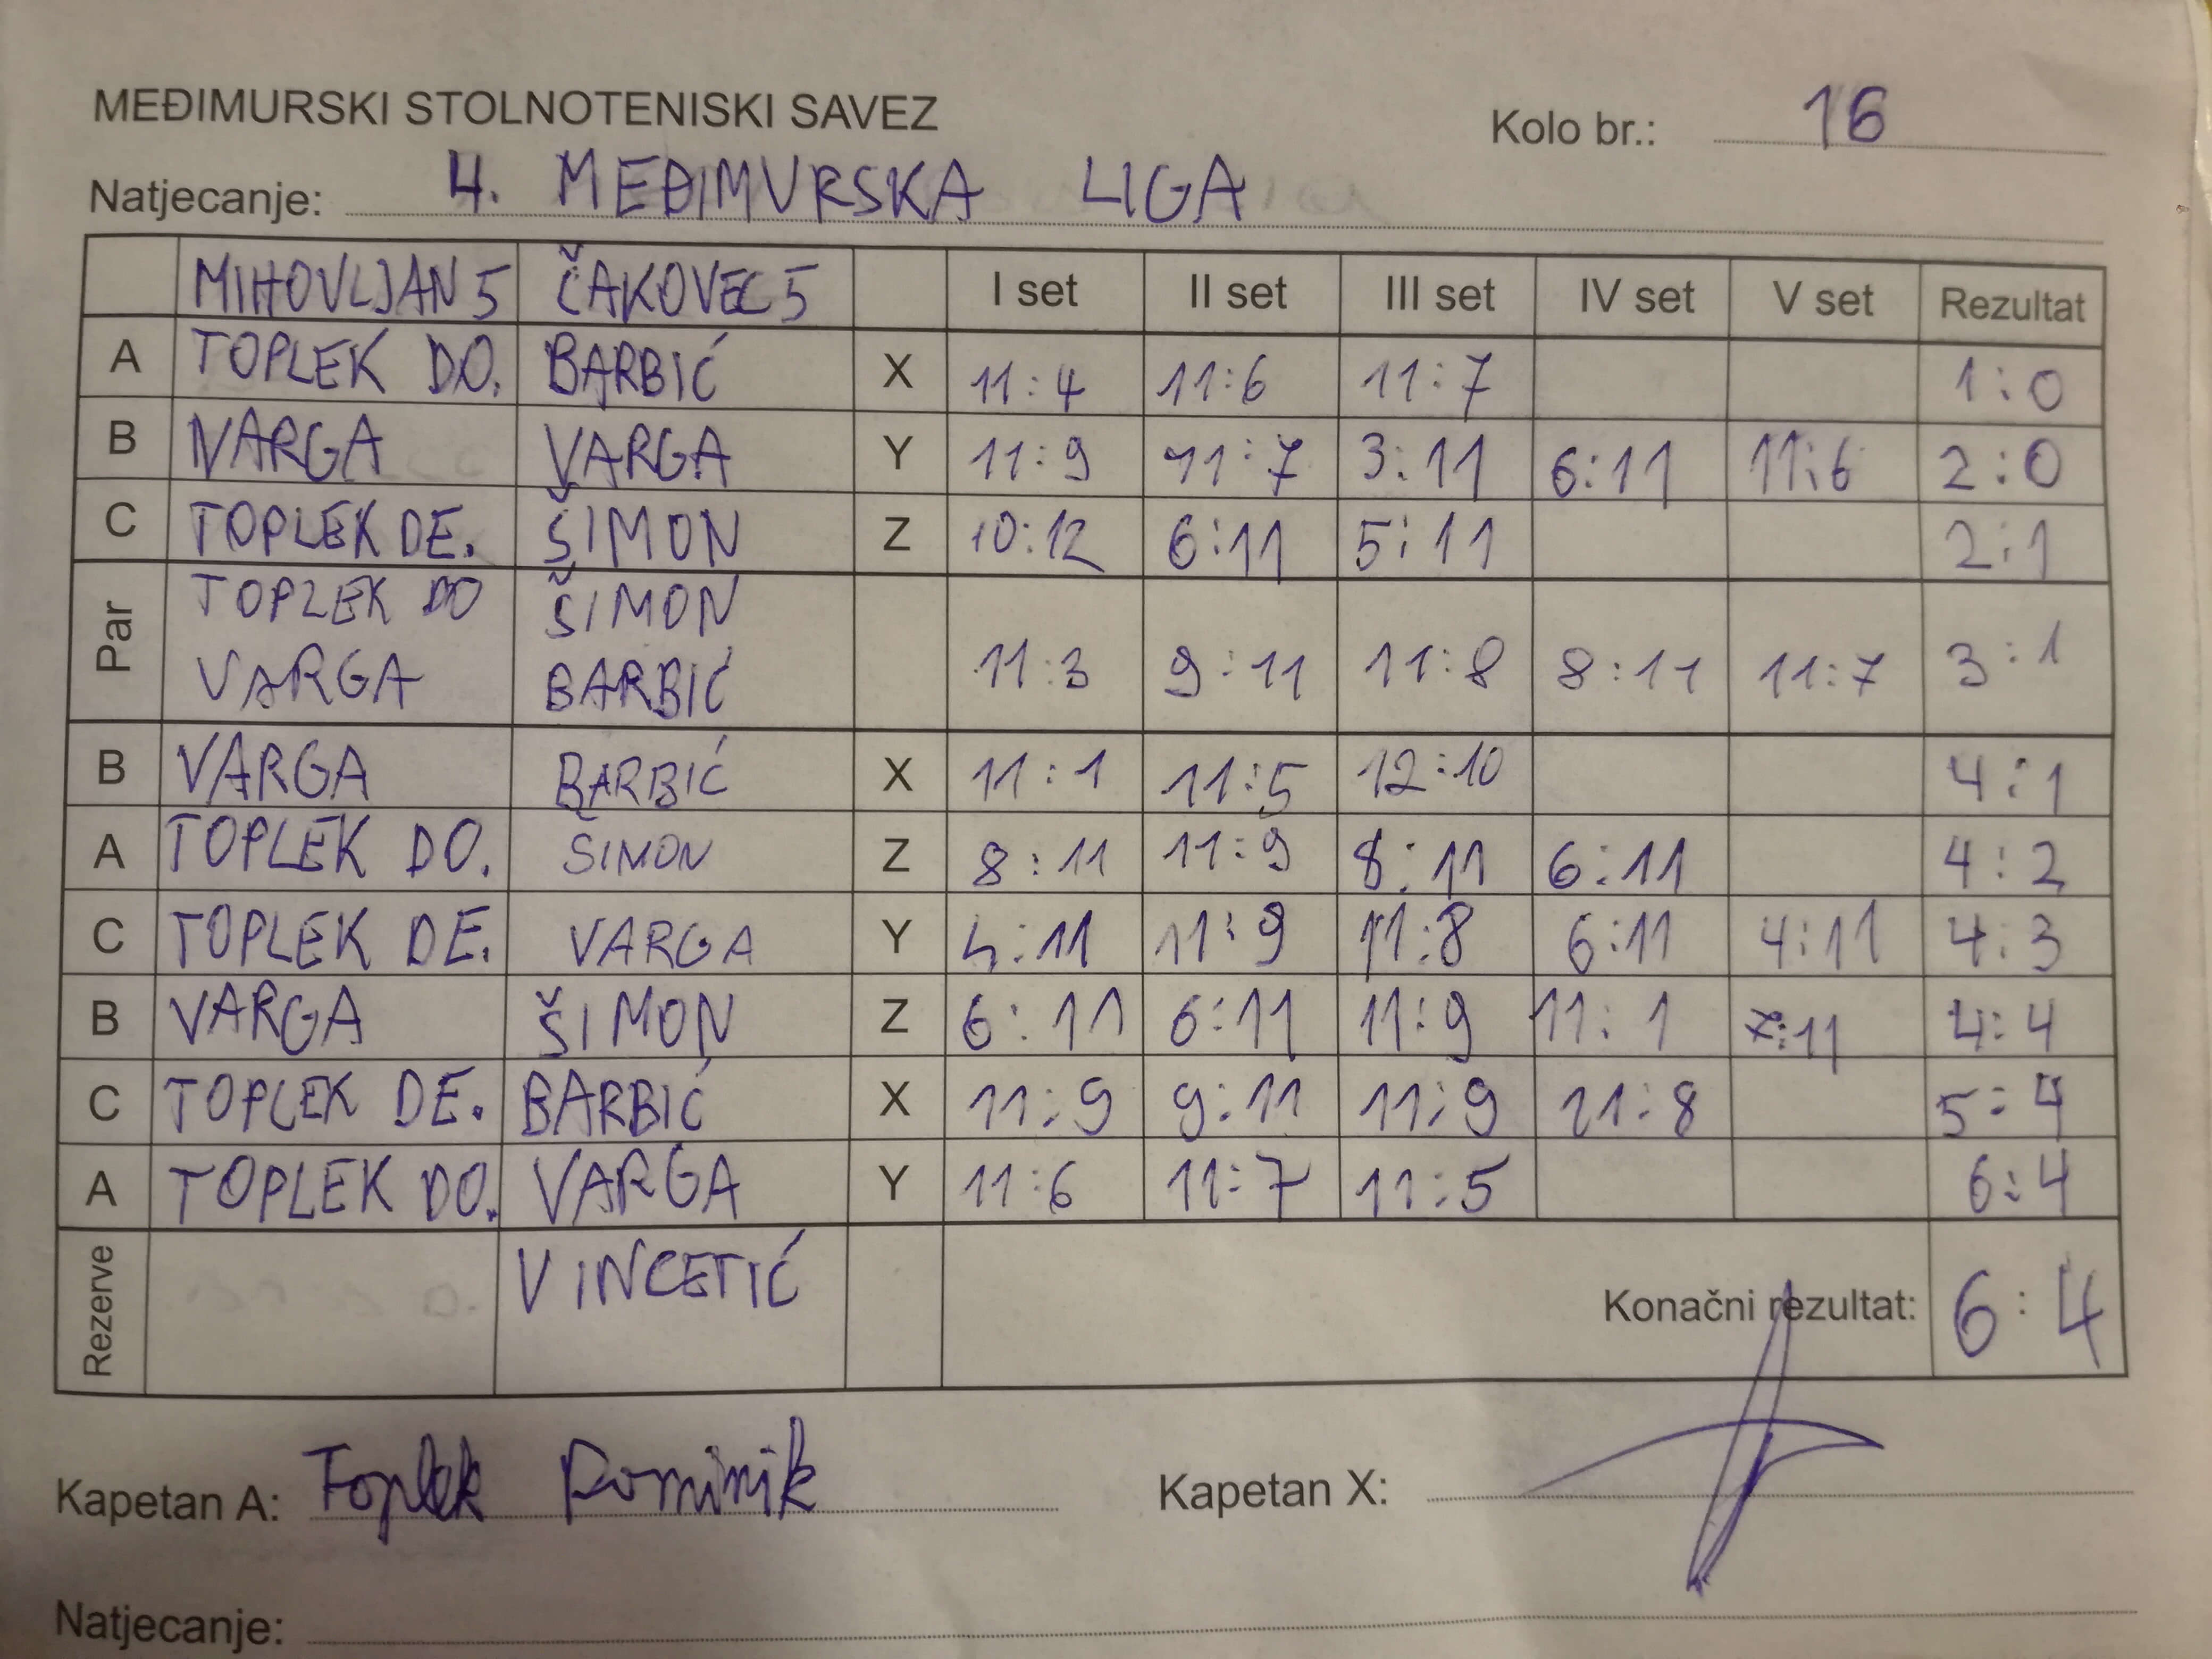 MEĐIMURSKI STOLNOTENISKI SAVEZ
Kolo br.: 16
Natjecanje: 4. MEĐIMURSKA LIGA
MIHOVLJAN 5 ČAKOVEC 5 I set II set III set IV set V set Rezultat
A TOPLEK DO. BARBIĆ X 11:4 11:6 11:7 1:0
B VARGA VARGA Y 11:9 11:7 3:11 6:11 11:6 2:0
C TOPLEK DE. ŠIMON Z 10:12 6:11 5:11 2:1
Par TOPLEK DO ŠIMON
VARGA BARBIĆ 11:3 9:11 11:8 8:11 11:7 3:1
B VARGA BARBIĆ X 11:1 11:5 12:10 4:1
A TOPLEK DO. ŠIMON Z 8:11 11:9 8:11 6:11 4:2
C TOPLEK DE. VARGA Y 4:11 11:9 11:8 6:11 4:11 4:3
B VARGA ŠIMON Z 6:11 6:11 11:9 11:1 7:11 4:4
C TOPLEK DE. BARBIĆ X 11:9 9:11 11:9 11:8 5:4
A TOPLEK DO. VARGA Y 11:6 11:7 11:5 6:4
Rezerve VINCETIĆ Konačni rezultat: 6:4
Kapetan A: Toplek Dominik Kapetan X:
Natjecanje: